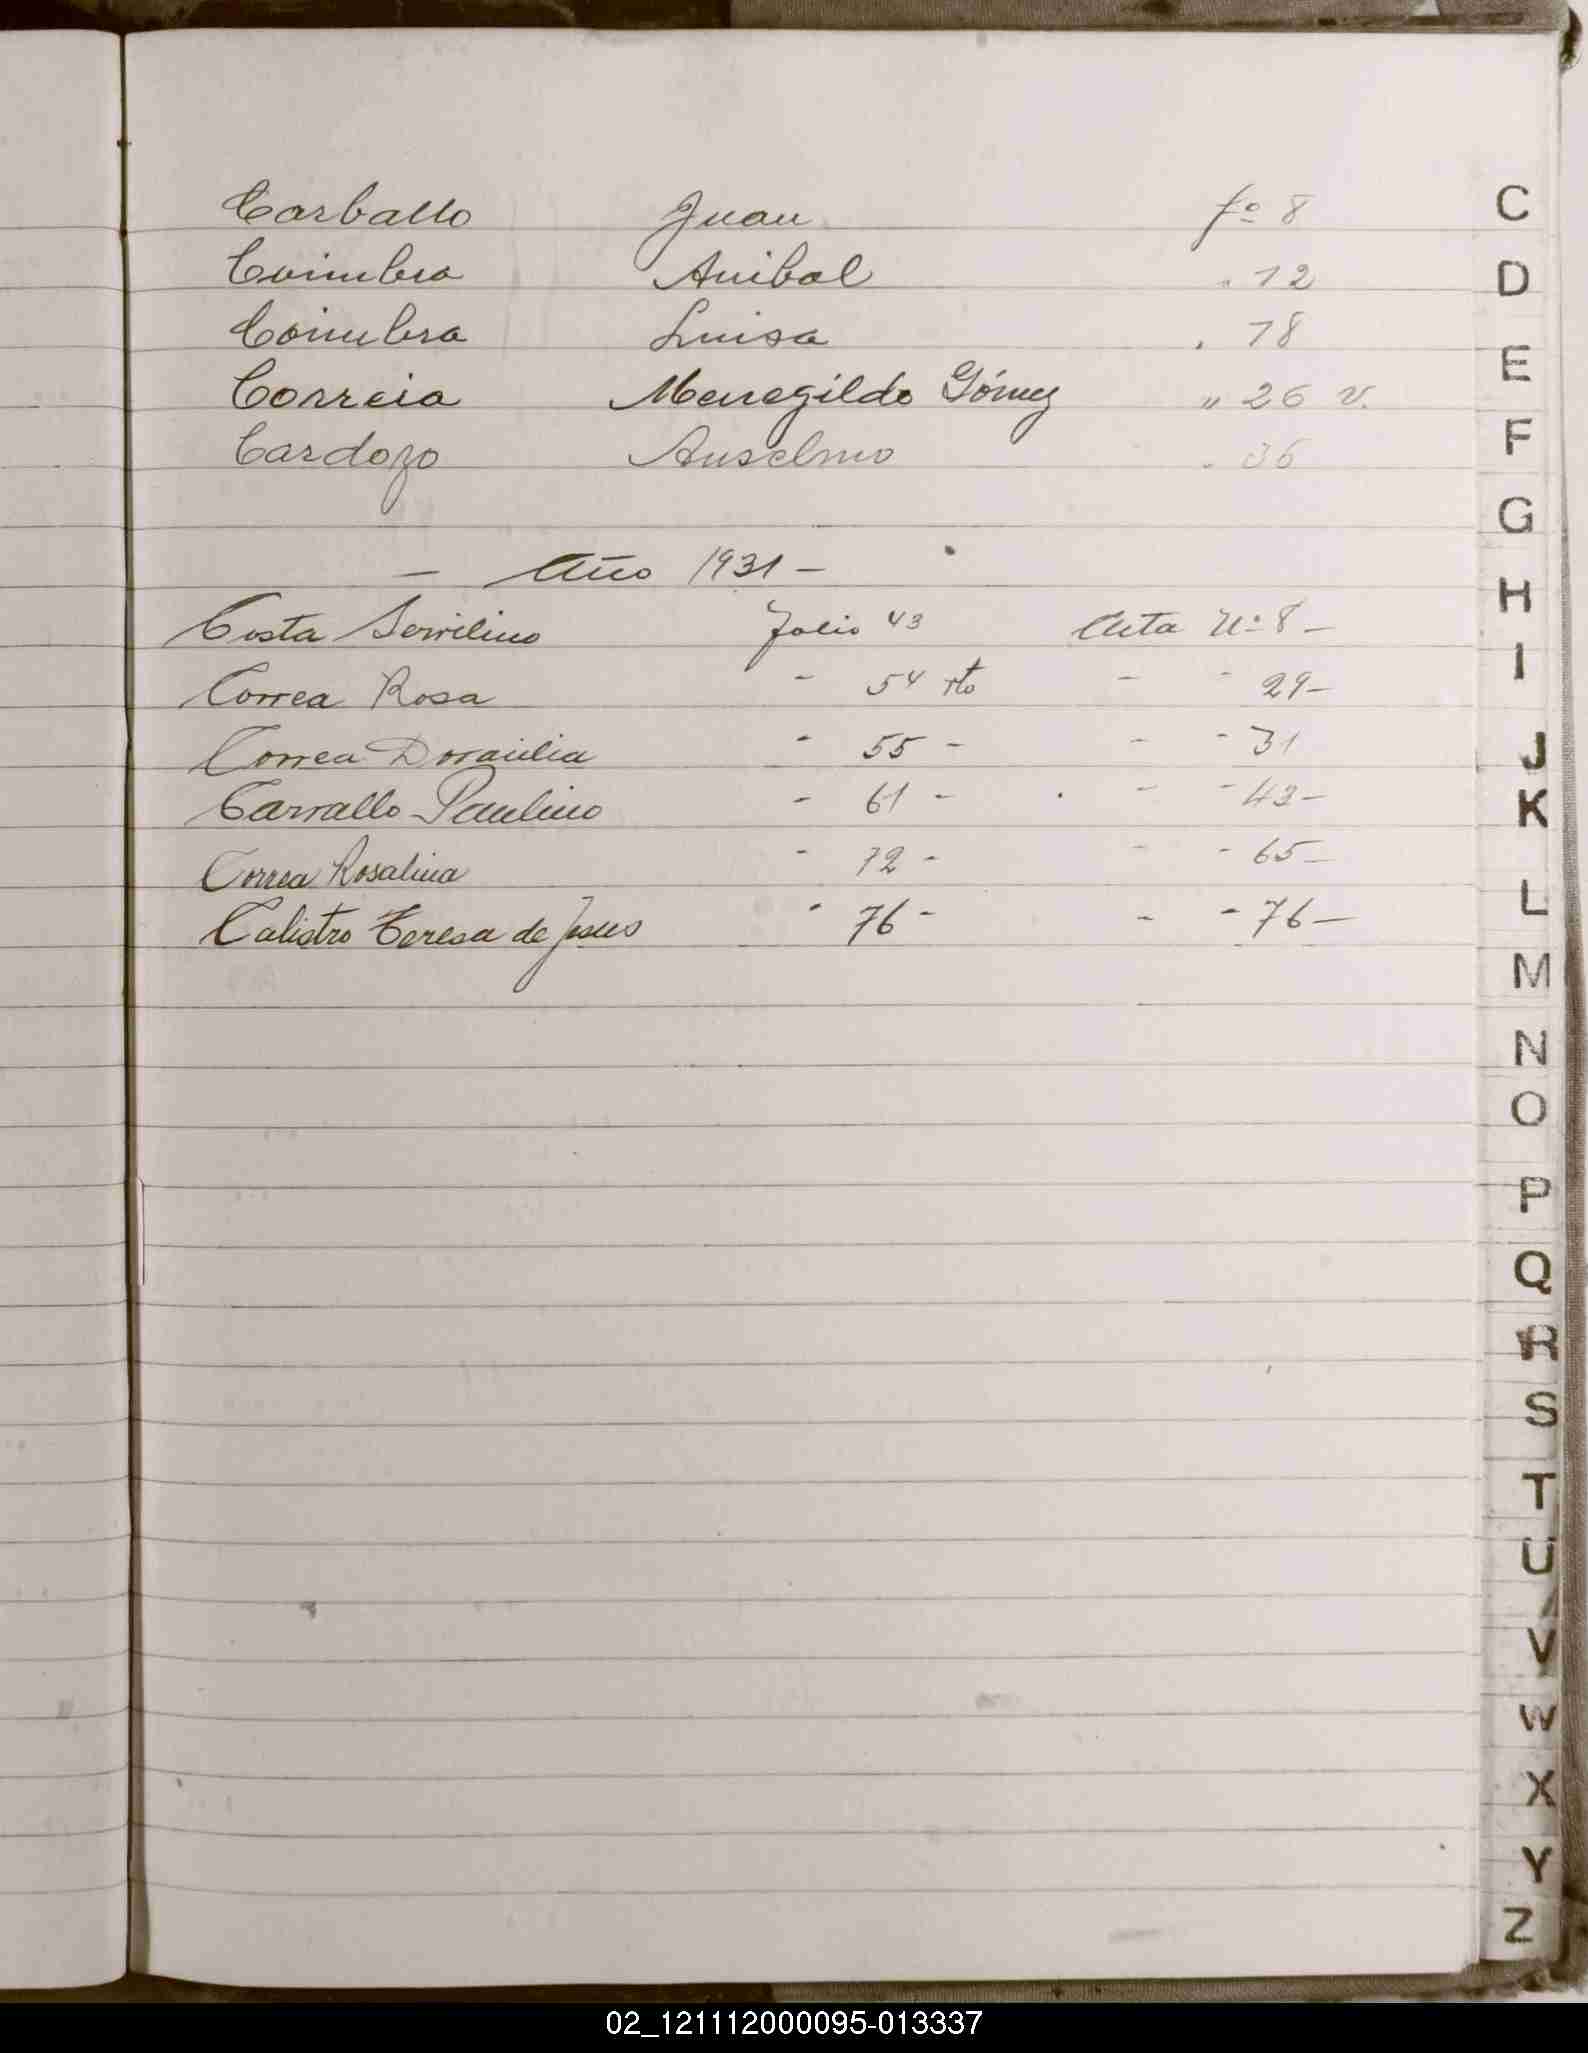 Carballo Juan fo 8
Coimbra Anibal " 12
Coimbra Luisa " 18
Correia Meregildo Gómez " 26 v.
Cardozo Anselmo " 36
- Año 1931 -
Costa Folio 43 Acta Nº 8 -
Correa Rosa " 54 vto " " 29 -
Correa " 55 - " " 31
Carvallo Paulino " 61 - " " 43 -
Correa Rosalina " 72 - " " 65 -
Calistro Teresa de Jesus " 76 - " " 76 -
C
D
E
F
G
H
I
J
K
L
M
N
O
P
Q
R
S
T
U
V
W
X
Y
Z
02_121112000095-013337